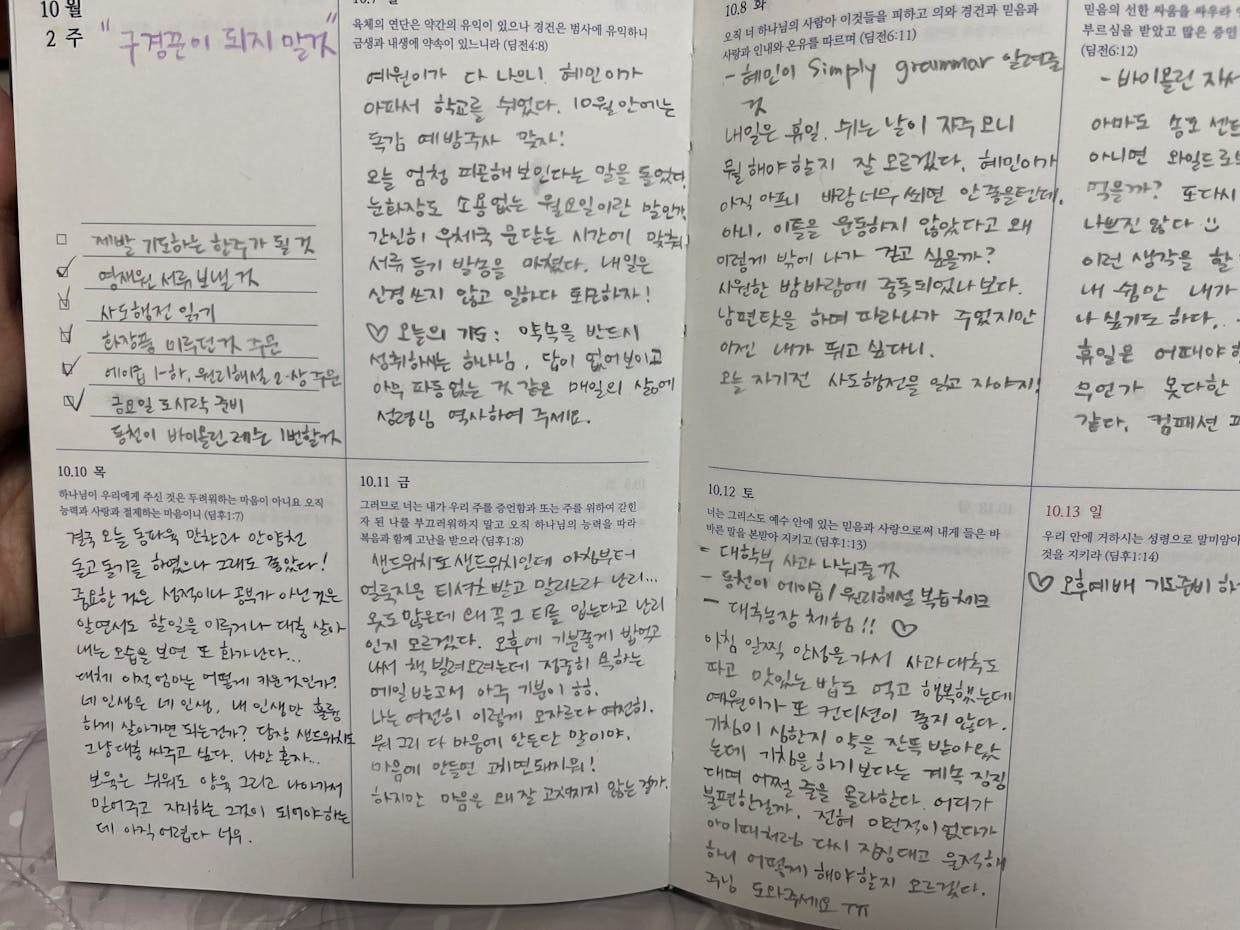 10월
2 주
"구경꾼이 되지 말것"
제발 기도하는 한주가 될 것
영재원 서류 보낼 것
사도행전 읽기
화장품 미루던 것 주문
에이급 1-하, 원리해설 2-상 주문
금요일 도시락 준비
동천이 바이올린 레슨 1번할것
육체의 연단은 약간의 유익이 있으나 경건은 범사에 유익하니
금생과 내생에 약속이 있느니라 (딤전4:8)
예원이가 다 나으니 혜민이가
아파서 학교를 쉬었다. 10월 안에는
독감 예방주사 맞자!
오늘 엄청 피곤해 보인다는 말을 들었다.
눈화장도 소용없는 월요일이란 말인가.
간신히 우체국 문닫는 시간에 맞춰
서류 등기 발송을 마쳤다. 내일은
신경쓰지 않고 일하다 토묘하자!
♡ 오늘의 기도 : 약속을 반드시
성취하시는 하나님, 답이 없어보이고
아무 파동없는 것 같은 매일의 삶에
성령님 역사하여 주세요.
10.8 화
오직 너 하나님의 사람아 이것들을 피하고 의와 경건과 믿음과
사랑과 인내와 온유를 따르며 (딤전6:11)
- 혜민이 Simply grammar 알려줄
것
내일은 휴일. 쉬는 날이 자주 오니
뭘 해야할지 잘 모르겠다. 혜민이가
아직 아프니 바람 너무 쐬면 안좋을텐데.
아니, 이틀을 운동하지 않았다고 왜
이렇게 밖에 나가 걷고 싶을까?
시원한 밤바람에 중독되었나보다.
남편탓을 하며 따라나가 주었지만
이젠 내가 뛰고 싶다니.
오늘 자기전 사도행전을 읽고 자야지!
믿음의 선한 싸움을 싸우라
부르심을 받았고 많은 증인
(딤전6:12)
- 바이올린
아마도 송도
아니면 와일드
먹을까? 또다시
나쁘진 않다
이런 생각을 할
내 쉼만 내가
나 싶기도 하다.
휴일은 어때야
무언가 못다한
같다. 컴패션
10.10 목
하나님이 우리에게 주신 것은 두려워하는 마음이 아니요 오직
능력과 사랑과 절제하는 마음이니 (딤후1:7)
결국 오늘 동파육 만찬과 안양천
돌고 돌기를 하였으나 그래도 좋았다!
중요한 것은 성적이나 공부가 아닌 것은
알면서도 할일을 미루거나 대충 살아
내는 모습을 보면 또 화가난다...
대체 이적 엄마는 어떻게 키운것인가?
네 인생은 네 인생, 내 인생만 훌륭
하게 살아가면 되는건가? 당장 샌드위치도
그냥 대충 싸주고 싶다. 나만 혼자...
보육은 쉬워도 양육 그리고 나아가서
믿어주고 지지하는 그것이 되어야하는
데 아직 어렵다 너무.
10.11 금
그러므로 너는 내가 우리 주를 증언함과 또는 주를 위하여 갇힌
자 된 나를 부끄러워하지 말고 오직 하나님의 능력을 따라
복음과 함께 고난을 받으라 (딤후1:8)
샌드위치도 샌드위치인데 아침부터
얼룩지운 티셔츠 빨고 말리느라 난리...
옷도 많은데 왜 꼭 그 티를 입는다고 난리
인지 모르겠다. 오후에 기분좋게 밥먹고
나서 책 빌려오려는데 정중히 욕하는
메일 받고서 아주 기분이 하하.
나는 여전히 이렇게 모자르다 여전히.
뭐 그리 다 마음에 안든단 말이야.
마음에 안들면 고치면돼지뭐!
하지만 마음은 왜 잘 고쳐지지 않는 걸까.
10.12 토
너는 그리스도 예수 안에 있는 믿음과 사랑으로써 내게 들은 바
바른 말을 본받아 지키고 (딤후1:13)
- 대학부 사과 나눠줄 것
- 동천이 에이급 / 원리해설 복습 체크
- 대추농장 체험!! ♡
아침 일찍 안성을 가서 사과 대추도
따고 맛있는 밥도 먹고 행복했는데
예원이가 또 컨디션이 좋지 않다.
기침이 심한지 약을 잔뜩 받아왔
는데 기침을 하기 보다는 계속 징징
대며 어쩔 줄을 몰라한다. 어디가
불편한걸까. 전혀 이런적이 없다가
아이때처럼 다시 징징대고 울적해
하니 어떻게 해야할지 모르겠다.
주님 도와주세요 ㅠㅠ
10.13 일
우리 안에 거하시는 성령으로 말미암아
것을 지키라 (딤후1:14)
♡ 오후예배 기도준비